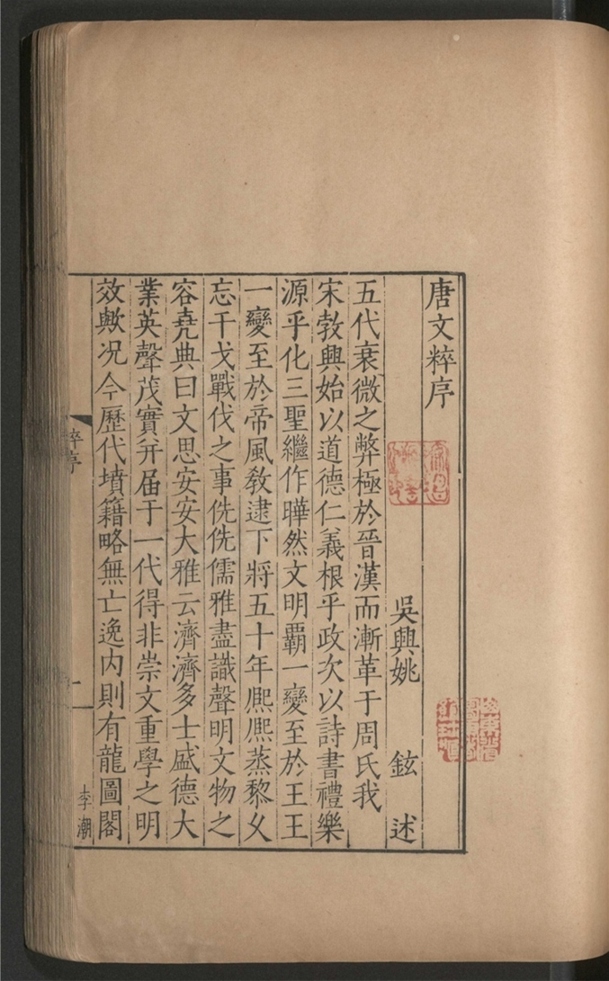 唐文粹序
吳興姚 鉉 述
五代衰微之弊極於晉漢而漸革于周氏我
宋敎興始以道德仁義根乎政次以詩書禮樂
源乎化三聖繼作曄然文明霸一變至於王王
一變至於帝風敎逮下將五十年熈熈蒸黎乂
忘干戈戰伐之事侁侁儒雅盡識聲明文物之
容堯典曰文思安安大雅云濟濟多士盛德大
業英聲茂實并届于一代得非崇文重學之明
效歟况今歷代墳籍略無亡逸内則有龍圖閣
粹序
一
李潮